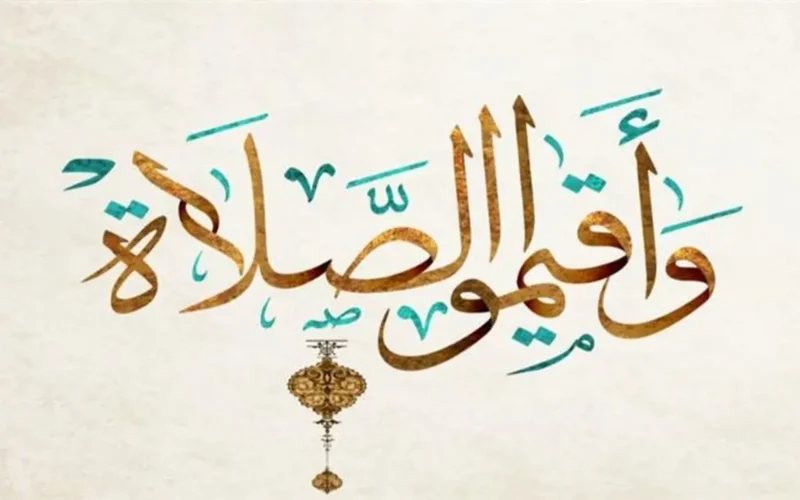 وَأَقيموا الصَّلَاة